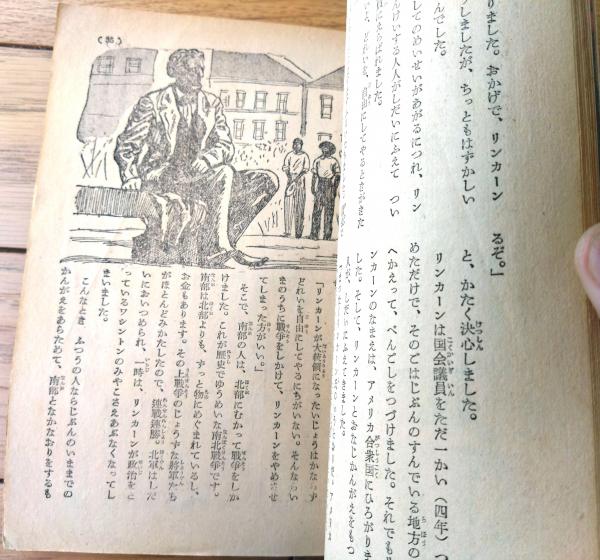 りました。おかげで、リンカーン
うしましたが、ちっともはずかしい
んでした。
してのめいせいがあがるにつれ、リン
んけいする人人がしだいにふえて つい
にえらばれました。
自由にしてやるときがきた
るぞ。」
と、かたく決心しました。
リンカーンは国会議員をただ一かい(四年)つ
めただけで、そのごはじぶんのすんでいる地方の
へかえって、べんごしをつづけました。それでもリ
ンカーンのなまえは、アメリカ合衆国にひろがりま
した。そして、リンカーンとおなじかんがえをもつ
人が、しだいにふえてきました。
「リンカーンが大統領になったいじょうはかならず
どれいを自由にしてやるにちがいない。そんならい
まのうちに戦争をしかけて、リンカーンをやめさせ
てしまった方がいい。」
そこで、南部の人は、北部にむかって戦争をしか
けました。これが歴史でゆうめいな南北戦争です。
南部は北部よりも、ずっと物にめぐまれているし、
お金もあります。その上戦争のじょうずな将軍たち
がほとんどみかたしたので、連戦連勝。北軍はしだ
いにおいつめられ、一時は、リンカーンが政治をと
っているワシントンのみやこさえあぶなくなってし
まいました。
こんなとき、ふつうの人ならじぶんのいままでの
かんがえをあらためて、南部となかなおりをするも